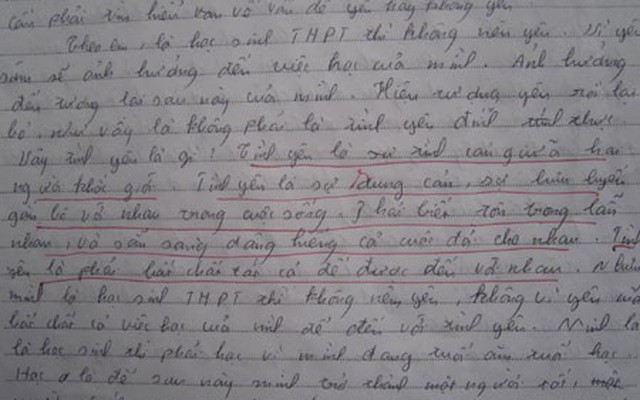 cần phải tìm hiểu vấn về vấn đề yêu hay không yêu
Theo em, là học sinh THPT thì không nên yêu. Vì yêu
sớm sẽ ảnh hưởng đến việc học của mình. Ảnh hưởng
đến tương lai sau này của mình. Hiện tượng yêu rồi lại
bỏ, như vậy là không phải là tình yêu đích thực
Vậy tình yêu là gì? Tình yêu là sự tình cảm giữa hai
người khác giới. Tình yêu là sự dung cảm, sự luôn luyến
gắn bó với nhau trong cuộc sống. Phải biết tôn trọng lẫn
nhau, và sẵn sàng dâng hiếng cả cuộc đời cho nhau. Tình
yêu là phải bất chất tất cả để được đến với nhau. Nhưng
mình là học sinh THPT thì không nên yêu, không vì yêu mà
bất chất cả việc học của mình để đến với tình yêu. Mình là
là học sinh thì phải học vì mình đang tuổi ăn tuổi học.
Học là để sau này mình trở thành một người tốt, một